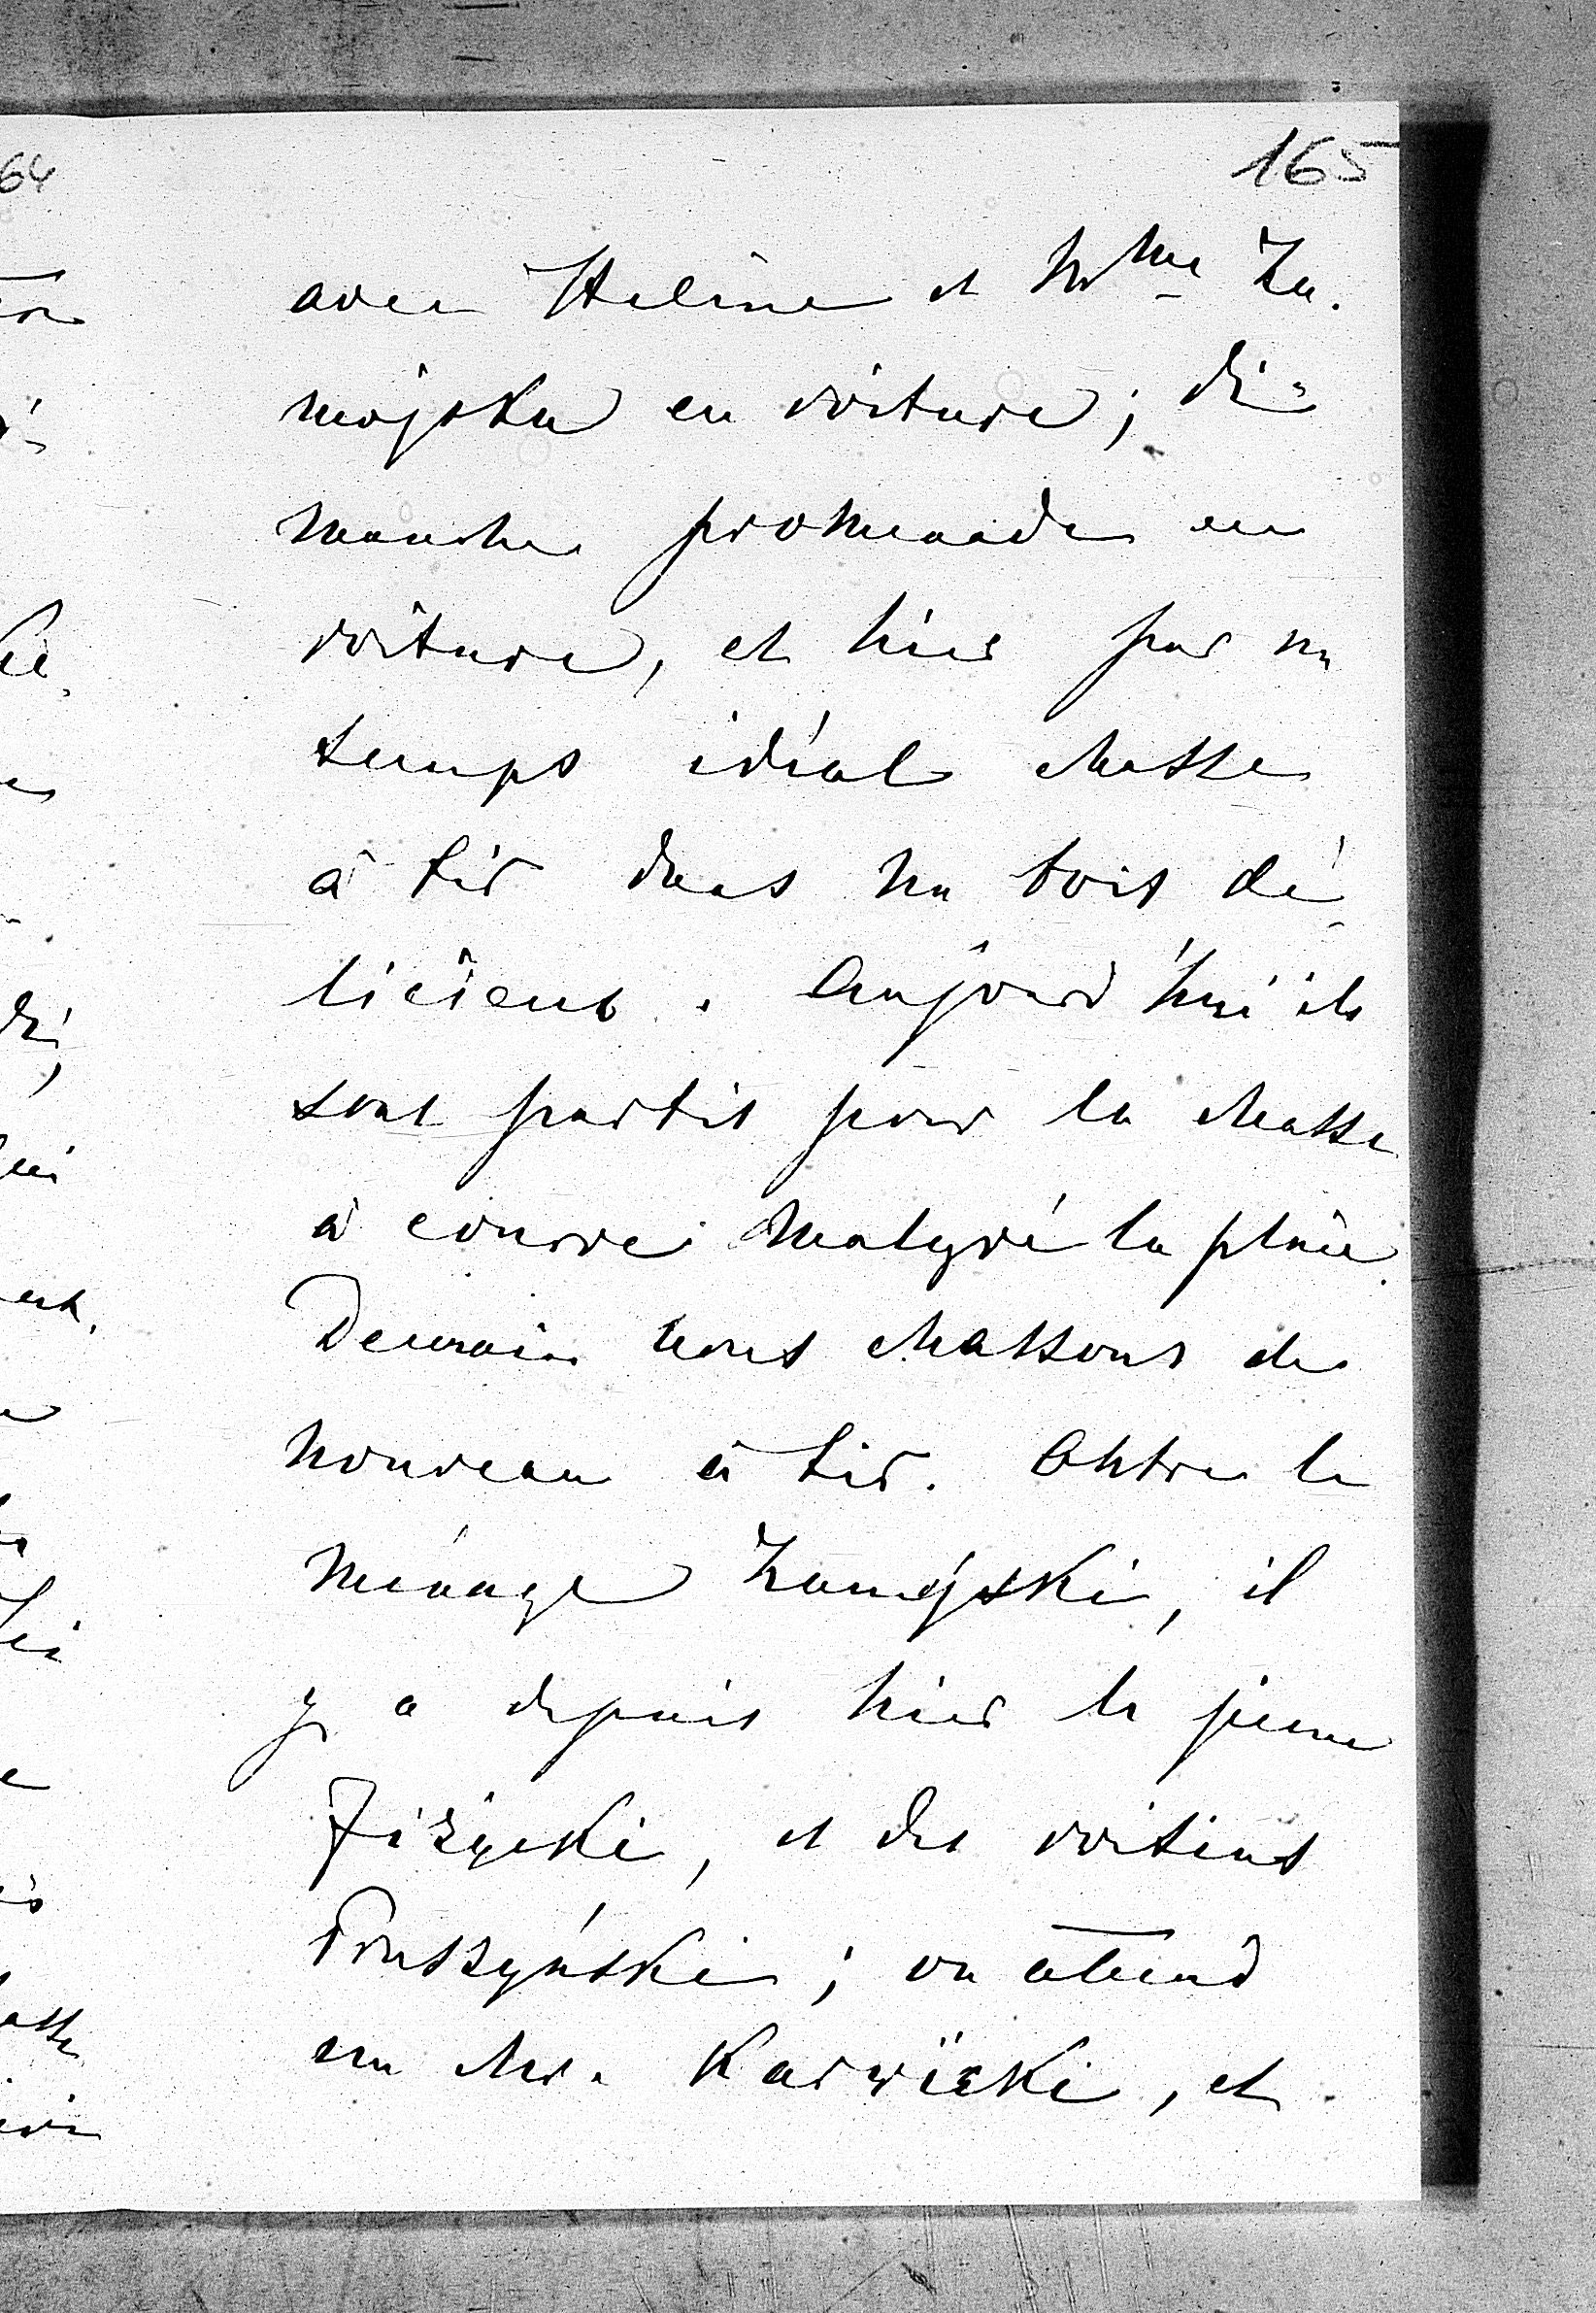 165
avec Hélène et Mme Za.
mojska en voiture; di-
manche promenade en
voiture, et hier par un
temps idéal chasse
à tir dans un bois dé-
licieux. Aujourd'hui ils
sont partis pour la chasse
à courre malgré la pluie.
Demain nous chassons de
nouveau à tir. Outre le
ménage Zamojski, il
y a depuis hier le jeune
Jiżycki, et des voisins
Pruszyński; on attend
em Mr. Karwicki, et
64